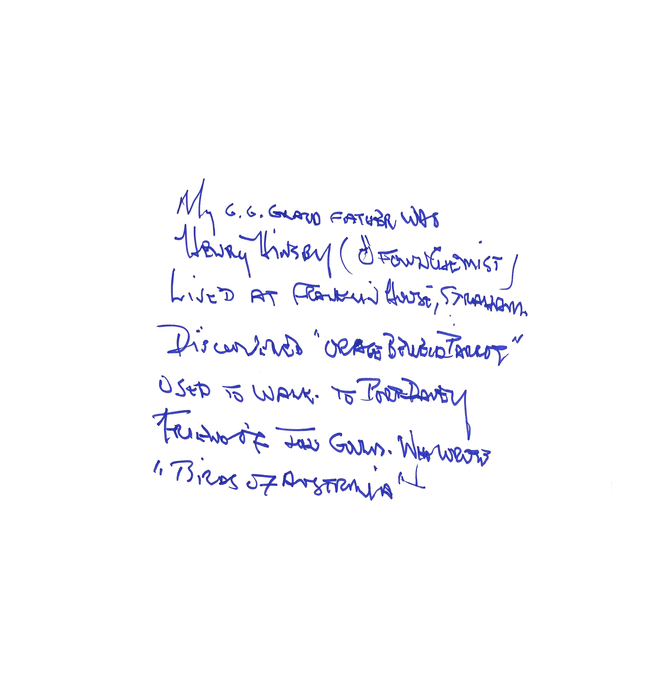 My G.G. GRAND FATHER WAS
HENRY HINSBY ( CHEMIST )
LIVED AT FRANKLIN HOUSE, STRAHAN.
DISCOVERED "ORAGE BELLIED PARROT"
USED TO WALK. TO PORT DAVEY
FRIEND OF GOULD. WHO WROTE
"BIRDS OF AUSTRALIA"